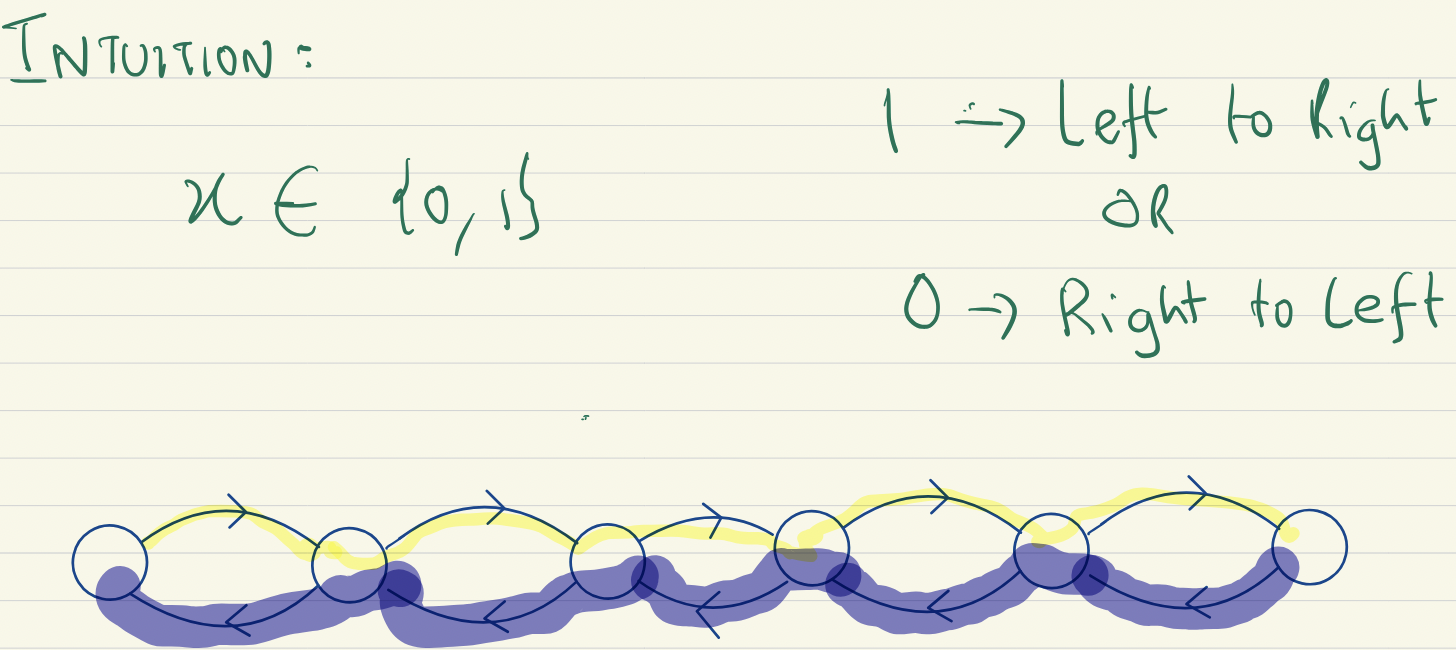 INTUITION:
1 → Left to Right
x ∈ {0, 1}
OR
0 → Right to Left